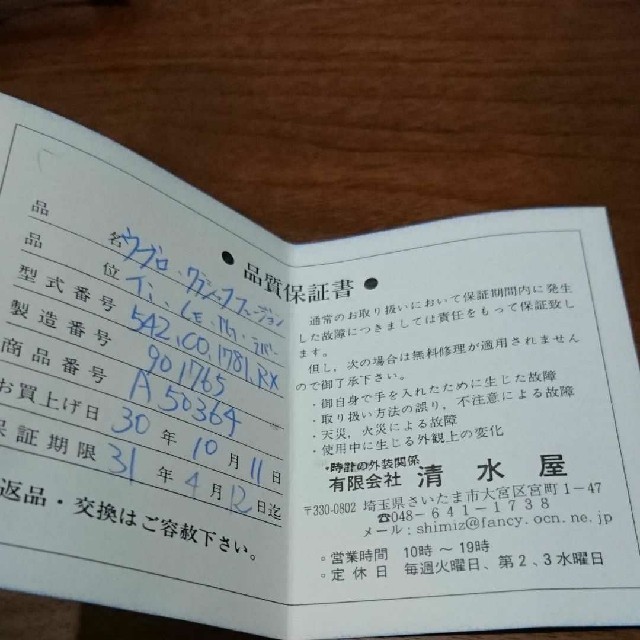 ● 品質保証書 ●
品名 ウブロ・クラシックフュージョン
品位 Ti.
型式番号 542.CO.1781.RX
製造番号 901765
商品番号 A50364
お買上げ日 30年10月11日
保証期限 31年4月12日迄
返品・交換はご容赦下さい。
通常のお取り扱いにおいて保証期間内に発生
した故障につきましては責任をもって保証致し
ます。
但し、次の場合は無料修理が適用されません
ので御了承下さい。
・御自身で手を入れたために生じた故障
・取り扱い方法の誤り、不注意による故障
・天災、火災による故障
・使用中に生じる外観上の変化
・時計の外装関係
有限会社 清水屋
〒330-0802 埼玉県さいたま市大宮区宮町1-47
☎048-641-1738
メール:shimiz@fancy.ocn.ne.jp
◦営業時間 10時~19時
◦定休日 毎週火曜日、第2、3水曜日